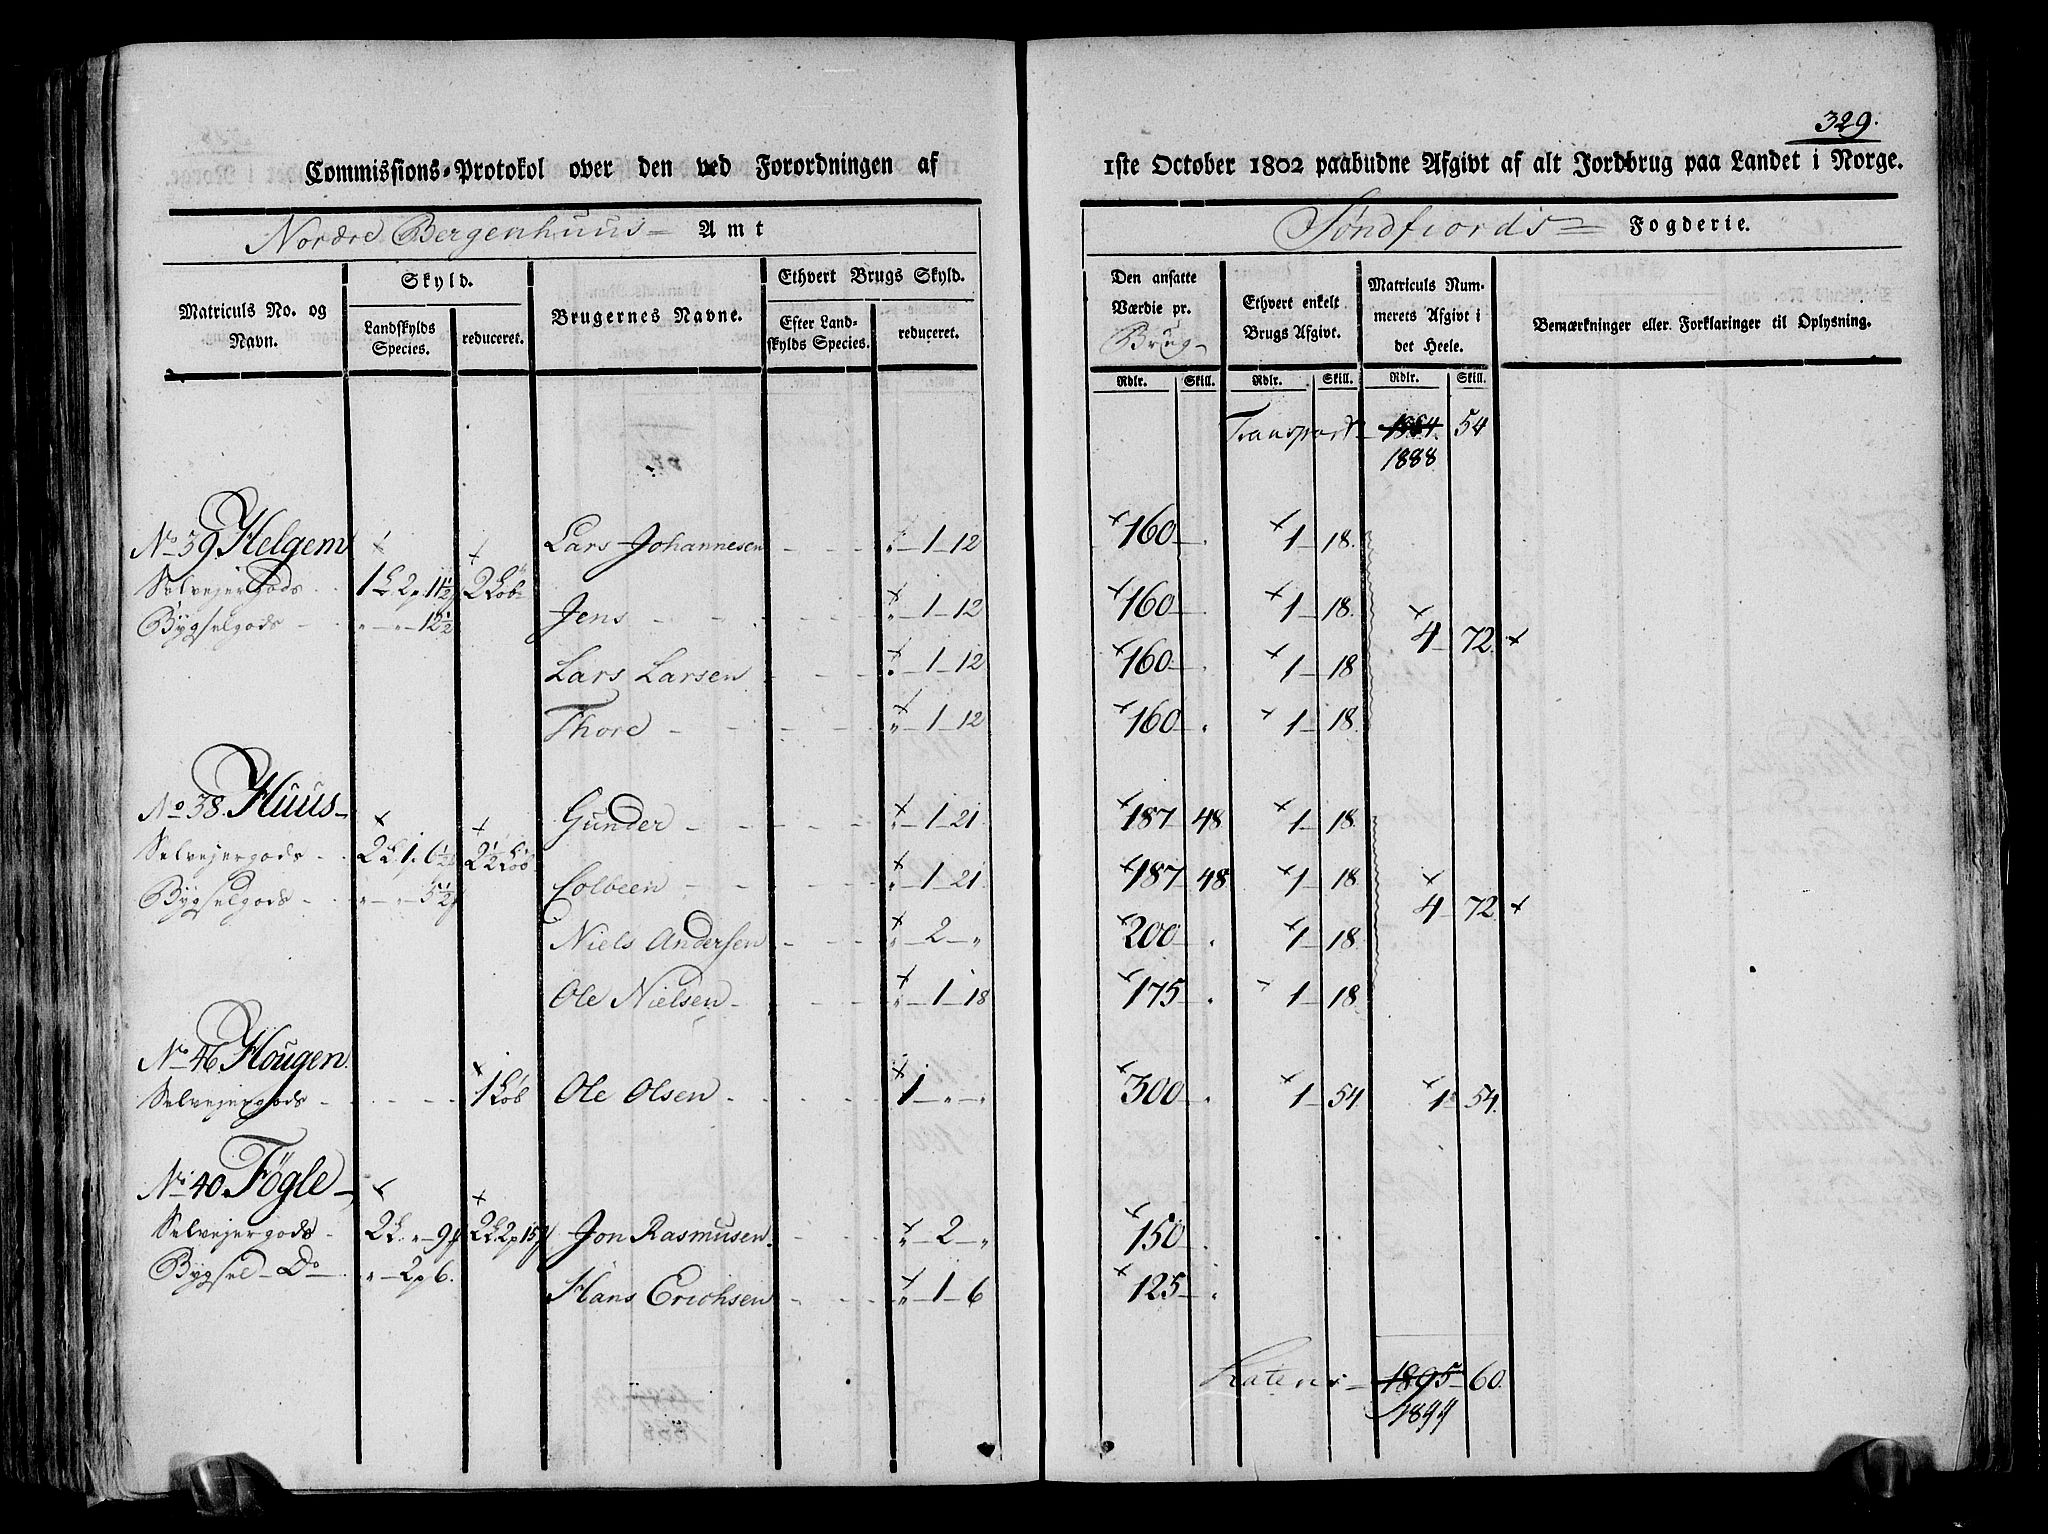 329.
Commissions-Protokol over den ved Forordningen af 1ste October 1802 paabudne Afgivt af alt Jordbrug paa Landet i Norge.
Nordre Bergenhuus Amt
Søndfiords Fogderie.
Matriculs No. og Navn.
Skyld.
Landskylds Species.
reduceret.
Brugernes Navne.
Ethvert Brugs Skyld.
Efter Landskylds Species.
reduceret.
Den ansatte Værdie pr. Brug
Ethvert enkelt Brugs Afgivt.
Matriculs Nummerets Afgivt i det Heele.
Bemærkninger eller Forklaringer til Oplysning.
Rdlr. Skill. Rdlr. Skill. Rdlr. Skill.
Transport 1888 54
No 39 Helgem Lars Johannesen " 1 12 160 . 1 18.
Selvejergods 2 Løb
Bygselgods Jens " 1 12 160 1 18. 4 72.
Lars Larsen " 1 12 160 . 1 18
Thore " 1 12 160 . 1 18.
No 38. Huus Gunder " 1 21. 187 48. 1 18.
Selvejergods 2½ Løb
Bygselgods Colbeen " 1 21. 187 48 1 18. 4 72.
Niels Andersen " 2 " 200 . 1 18.
Ole Nielsen " 1 18 175 . 1 18.
No 46. Hougen
Selvejergods 1 Løb Ole Olsen 1 " " 300 . 1 54 1 54.
No 40. Føgle
Selvejergods Jon Rasmusen. " 2 " 150 .
Bygsel Do Hans Erichsen " 1 6 125 .
Lateris 1895 60.
1899